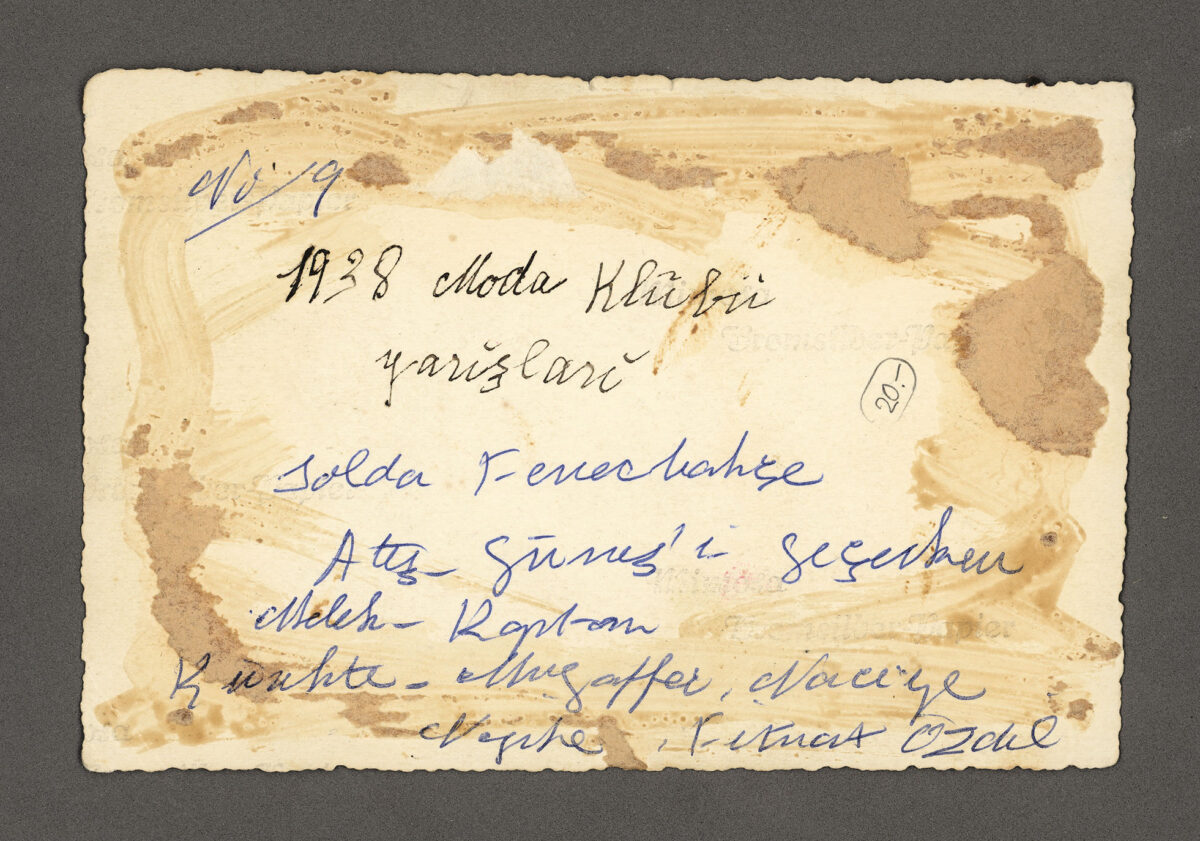 No: 9
1938 Moda Klübü
yarışları
20.-
Solda Fenerbahçe
Güneş'i geçerken
Melek - Kaptan
Kürekte - Muzaffer, Naciye
Nezihe, Fitnat Özdil
Bromsilber-Pa